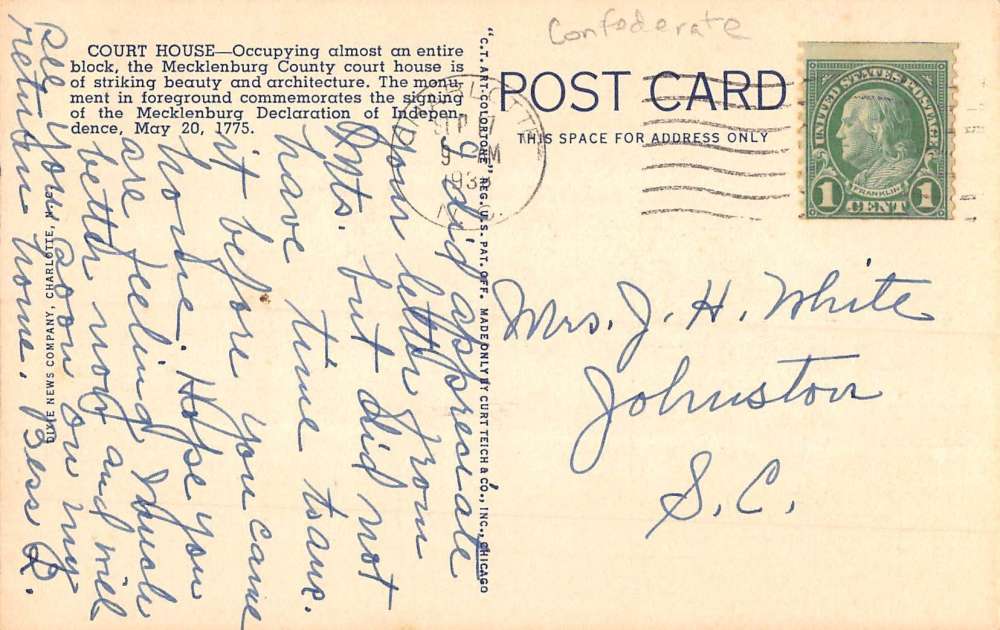 Confederate
COURT HOUSE—Occupying almost an entire
block, the Mecklenburg County court house is
of striking beauty and architecture. The monu-
ment in foreground commemorates the signing
of the Mecklenburg Declaration of Indepen-
dence, May 20, 1775.
POST CARD
THIS SPACE FOR ADDRESS ONLY
UNITED STATES POSTAGE
FRANKLIN
1 CENT 1
CHARLOTTE
SEP 7
193
N.C.
I did appreciate
your letter from
Mts. but did not
have time to ans.
it before you came
home. Hope you
are feeling much
better now and will
see you soon on my
return home. Bess D.
"C.T. ART-COLORTONE" REG. U.S. PAT. OFF. MADE ONLY BY CURT TEICH & CO., INC., CHICAGO
DIXIE NEWS COMPANY, CHARLOTTE, N. C.
Mrs. J. H. White
Johnston
S.C.